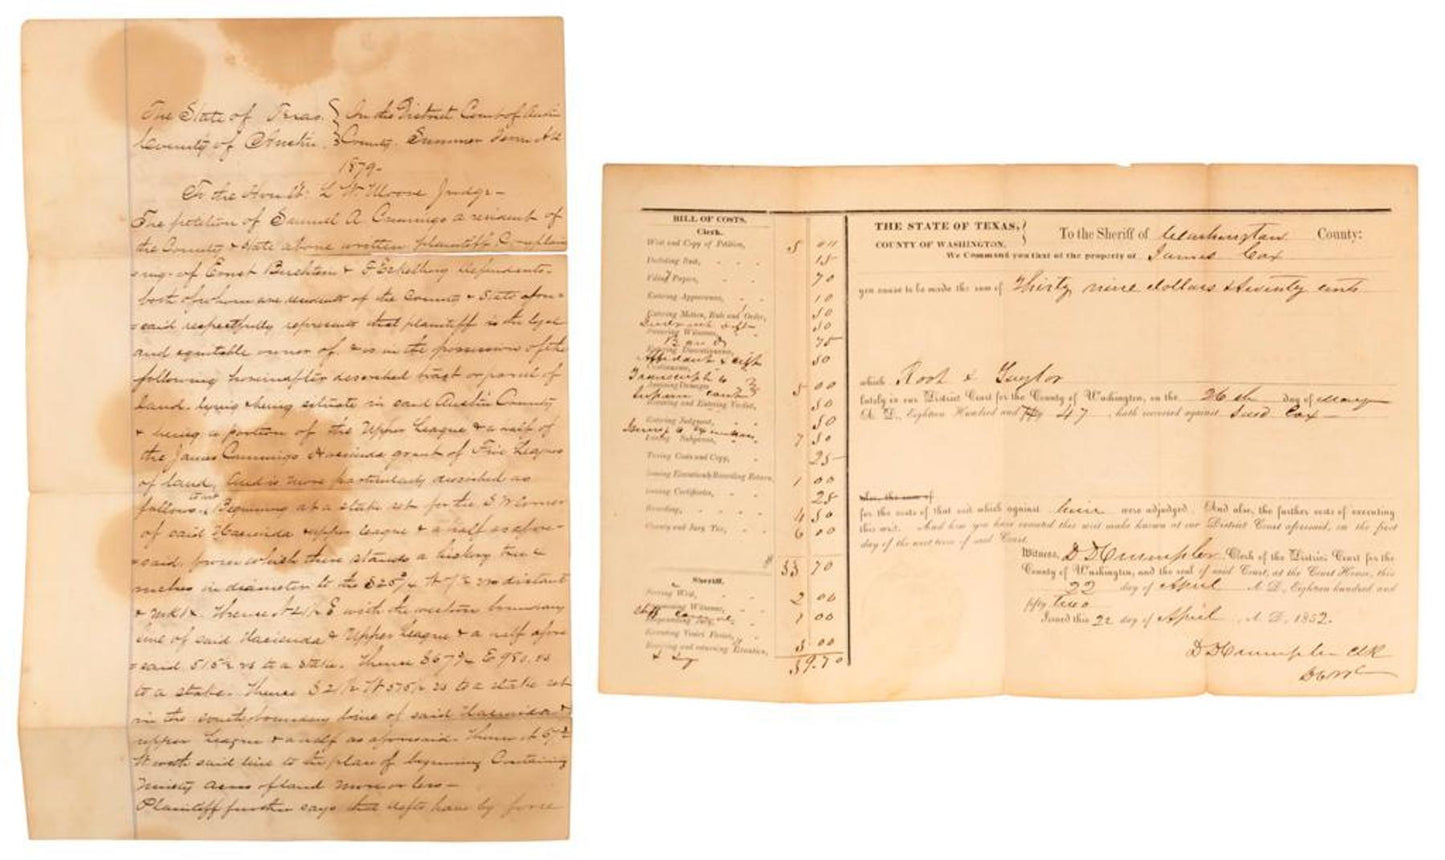 The State of Texas } In the District Court of Austin
County of Austin } County, Summer Term A D
1879-
To the Honbl: L W Moore Judge-
The petition of Samuel A Cummings a resident of
the County & State above written plaintiff Complain
ing of Ernst & defendants-
both of whom are residents of the County & State afore=
=said respectfully represents that plaintiff is the legal
and equitable owner of, & is in the possession of the
following hereinafter described tract or parcel of
land, lying & being situate in said Austin County
& being a portion of the Upper League & a half of
the James Cummings Hacienda grant of Five Leagues
of land, And is more particularly described as
follows, to wit Beginning at a stake set for the S W Corner
of said Hacienda & upper league & a half as afore-
=said, from which there stands a hickory tree
inches in diameter
& mkd Thence N E with the western boundary
line of said Hacienda & Upper League & a half afore
=said vrs to a stake. Thence E vrs
to a stake. Thence W vrs to a stake set
in the south boundary line of said Hacienda &
upper League & a half as aforesaid- Thence N
W with said line to the place of beginning Containing
Ninety acres of land more or less-
Plaintiff further says that defts have by force
BILL OF COSTS.
Clerk.
Writ and Copy of Petition,
Docketing Suit, 15
Filing Papers, 70
Entering Appearance, 10
Entering Motion, Rule and Order, 50
Swearing Witness, 50
Bond 75
Entering Discontinuance,
Affidavit & 50
Continuance,
Transcript to
Assessing Damages 5 00
Supreme Court
Receiving and Entering Verdict, 50
Entering Judgment, 50
Issuing Subpœna, 7 50
Taxing Costs and Copy, 25
Issuing Execution & Recording Return, 1 00
Issuing Certificate, 25
Recording, 4 50
County and Jury Tax, 6 00
$ 33 70
Sheriff.
Serving Writ, 2 00
Summoning Witness,
Empanneling Jury, 1 00
Executing Venire Facias,
Levying and returning Execution, 3 00
39.70
THE STATE OF TEXAS, }
COUNTY OF WASHINGTON. } To the Sheriff of Washington County:
We Command you that of the property of James Cox
you cause to be made the sum of Thirty nine dollars & Seventy cents
which Root & Taylor
lately in our District Court for the County of Washington, on the 26th day of May
A. D., Eighteen Hundred and Fifty 47, hath recovered against Cox
for the costs of that suit which against him were adjudged. And also, the further costs of executing
this writ. And how you have executed this writ make known at our District Court aforesaid, on the first
day of the next term of said Court.
Witness, D D Crumpler Clerk of the District Court for the
County of Washington, and the seal of said Court, at the Court House, this
22 day of April A. D., Eighteen hundred and
fifty two
Issued this 22 day of April A. D., 1852.
D D Crumpler Clk
D C W C